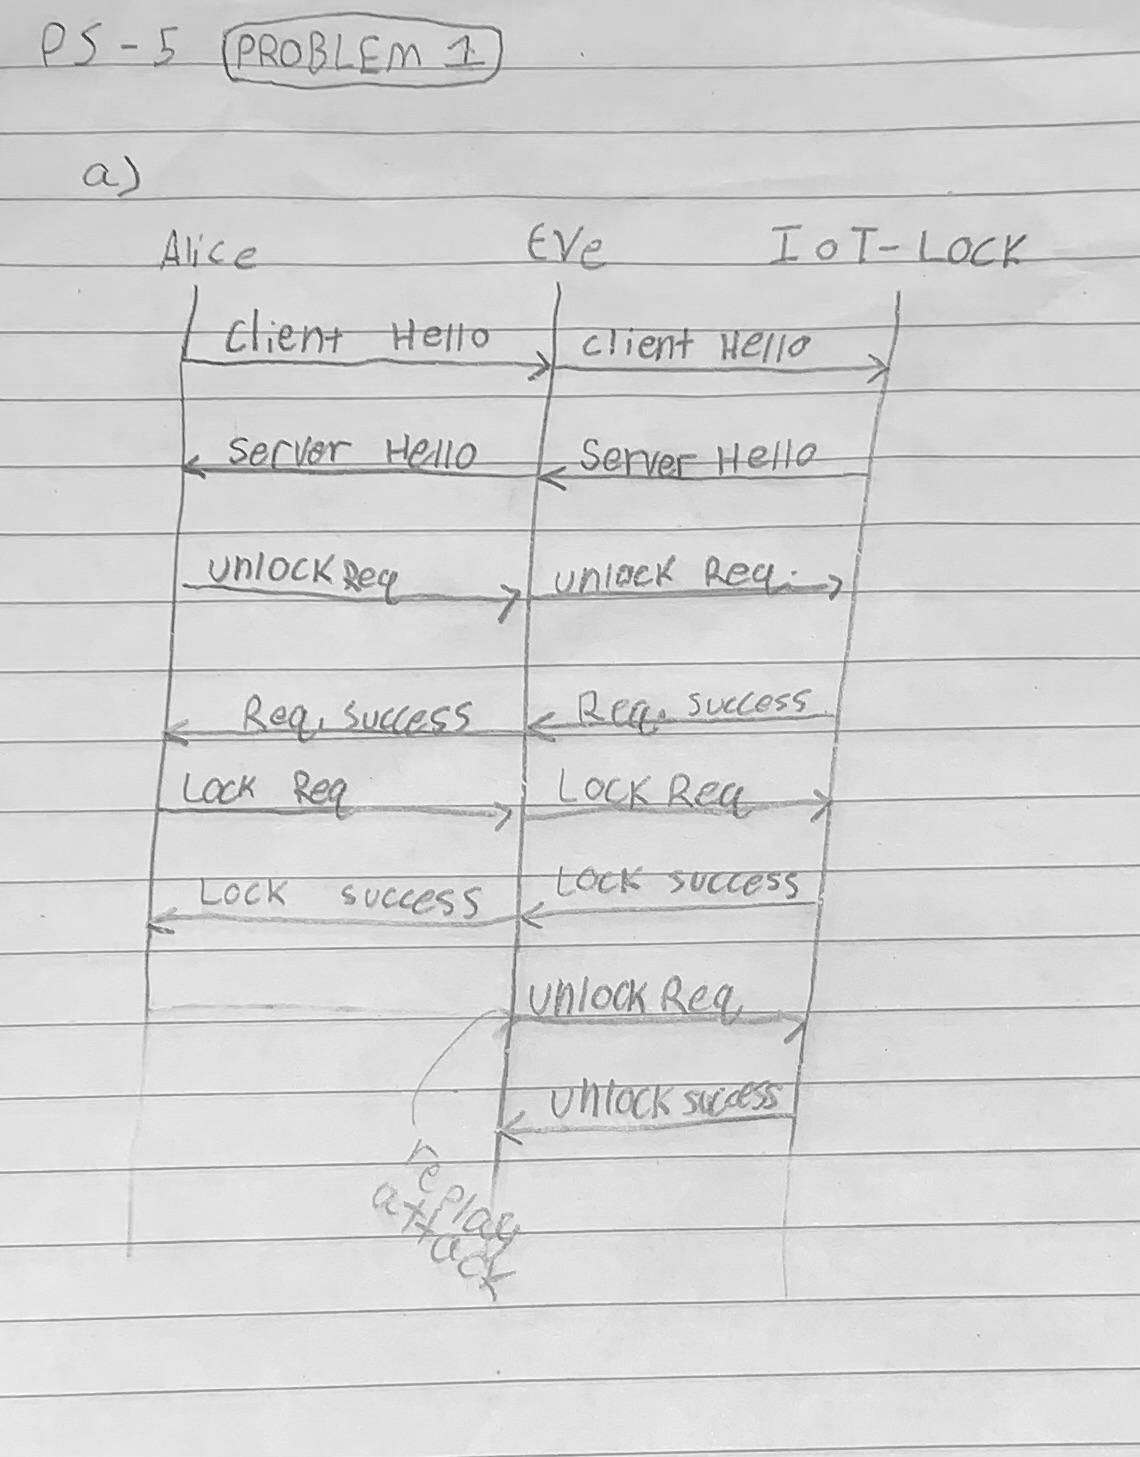 PS-5 PROBLEM 1
a)
Alice EVe IoT-LOCK
Client Hello client Hello
Server Hello Server Hello
UnlockReq unlock Req.
Req. success Req. success
Lock Req Lock Req
Lock success Lock success
UnlockReq
Unlock success
replay
attack